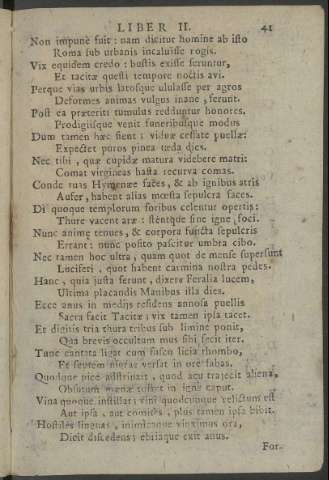 LIBER II. 41
Non impunè fuit: nam dicitur homine ab isto
Roma sub urbanis incaluisse rogis.
Vix equidem credo: bustis exisse feruntur,
Et tacitæ questi tempore noctis avi.
Perque vias urbis latosque ululasse per agros
Deformes animas vulgus inane, ferunt.
Post ea præteriti tumulus redduntur honores.
Prodigiisque venit funeribusque modus
Dum tamen hæc fient: viduæ cessate puellæ:
Expectet puros pinea teda dies.
Nec tibi, quæ cupidæ matura videbere matri:
Comat virgineas hasta recurva comas.
Conde tuas Hymenæe faces, & ab ignibus atris
Aufer, habent alias mœsta sepulcra faces.
Di quoque templorum foribus celentur opertis:
Thure vacent aræ: stentque sine igne foci.
Nunc animæ tenues, & corpora functa sepulcris
Errant: nunc posito pascitur umbra cibo.
Nec tamen hoc ultra, quam quot de mense supersunt
Luciferi, quot habent carmina nostra pedes.
Hanc, quia justa ferunt, dixere Feralia lucem,
Ultima placandis Manibus illa dies.
Ecce anus in medijs residens annosa puellis
Sacra facit Tacitæ; vix tamen ipsa tacet.
Et digitis tria thura tribus sub limine ponit,
Qua brevis occultum mus sibi fecit iter.
Tunc cantata ligat cum fusco licia rhombo,
Et septem nigras versat in ore fabas.
Quodque pice adstrinxit, quod acu trajecit aliena,
Obsutum mænæ torret in igne caput.
Vina quoque instillat: vini quodcunque relictum est
Aut ipsa, aut comites, plus tamen ipsa bibit.
Hostiles linguas, inimicaque vinximus ora,
Dicit discedens; ebriaque exit anus.
For-